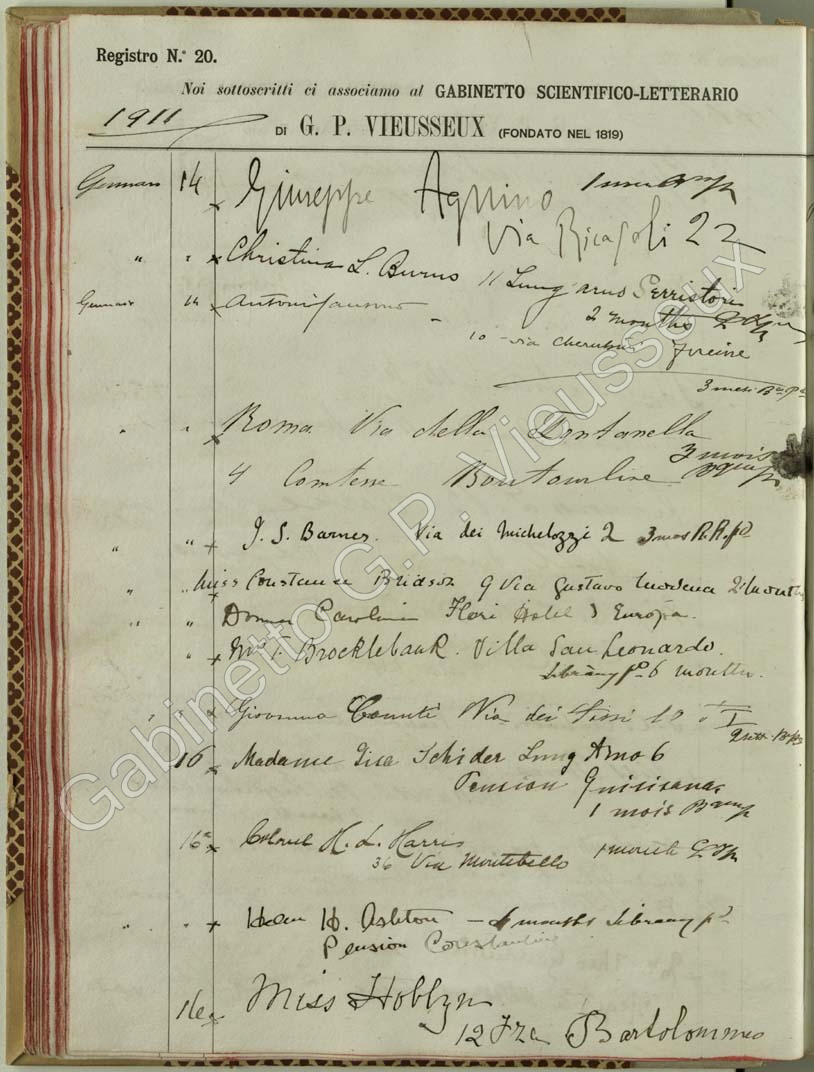 Registro N.º 20.
Noi sottoscritti ci associamo al GABINETTO SCIENTIFICO-LETTERARIO
1911
DI G. P. VIEUSSEUX (FONDATO NEL 1819)
Gennaio 14 x Giuseppe Aquino 1 mese
Via Ricasoli 22
" " x Christina L. Burns 11 Lung'arno Serristori
2 months
Gennaio 14 x
10 via Cherubini Firenze
3 mesi
" " x Roma Via della Fontanella
3 mois
4 Comtesse Boutourline
" " x J. S. Barnes. Via dei Michelozzi 2 3 mos R.R. pd
" " x Miss Constance Bridson 9 Via Gustavo Modena 2 Months
" " Donna Carolina Hotel Europa.
" x Mrs T. Brocklebank. Villa San Leonardo.
Library pd 6 months.
" " x Giovanna Via dei
16 x Madame Lisa Schider Lung Arno 6
Pension Quisisana
1 mois
16 x Colonel H. L. Harris
36 Via Montebello 1 month
" " x H. Ashton - 4 months Library pd
Pension Constantine
16 x Miss Hoblyn
12 Fra Bartolommeo
Gabinetto G.P. Vieusseux